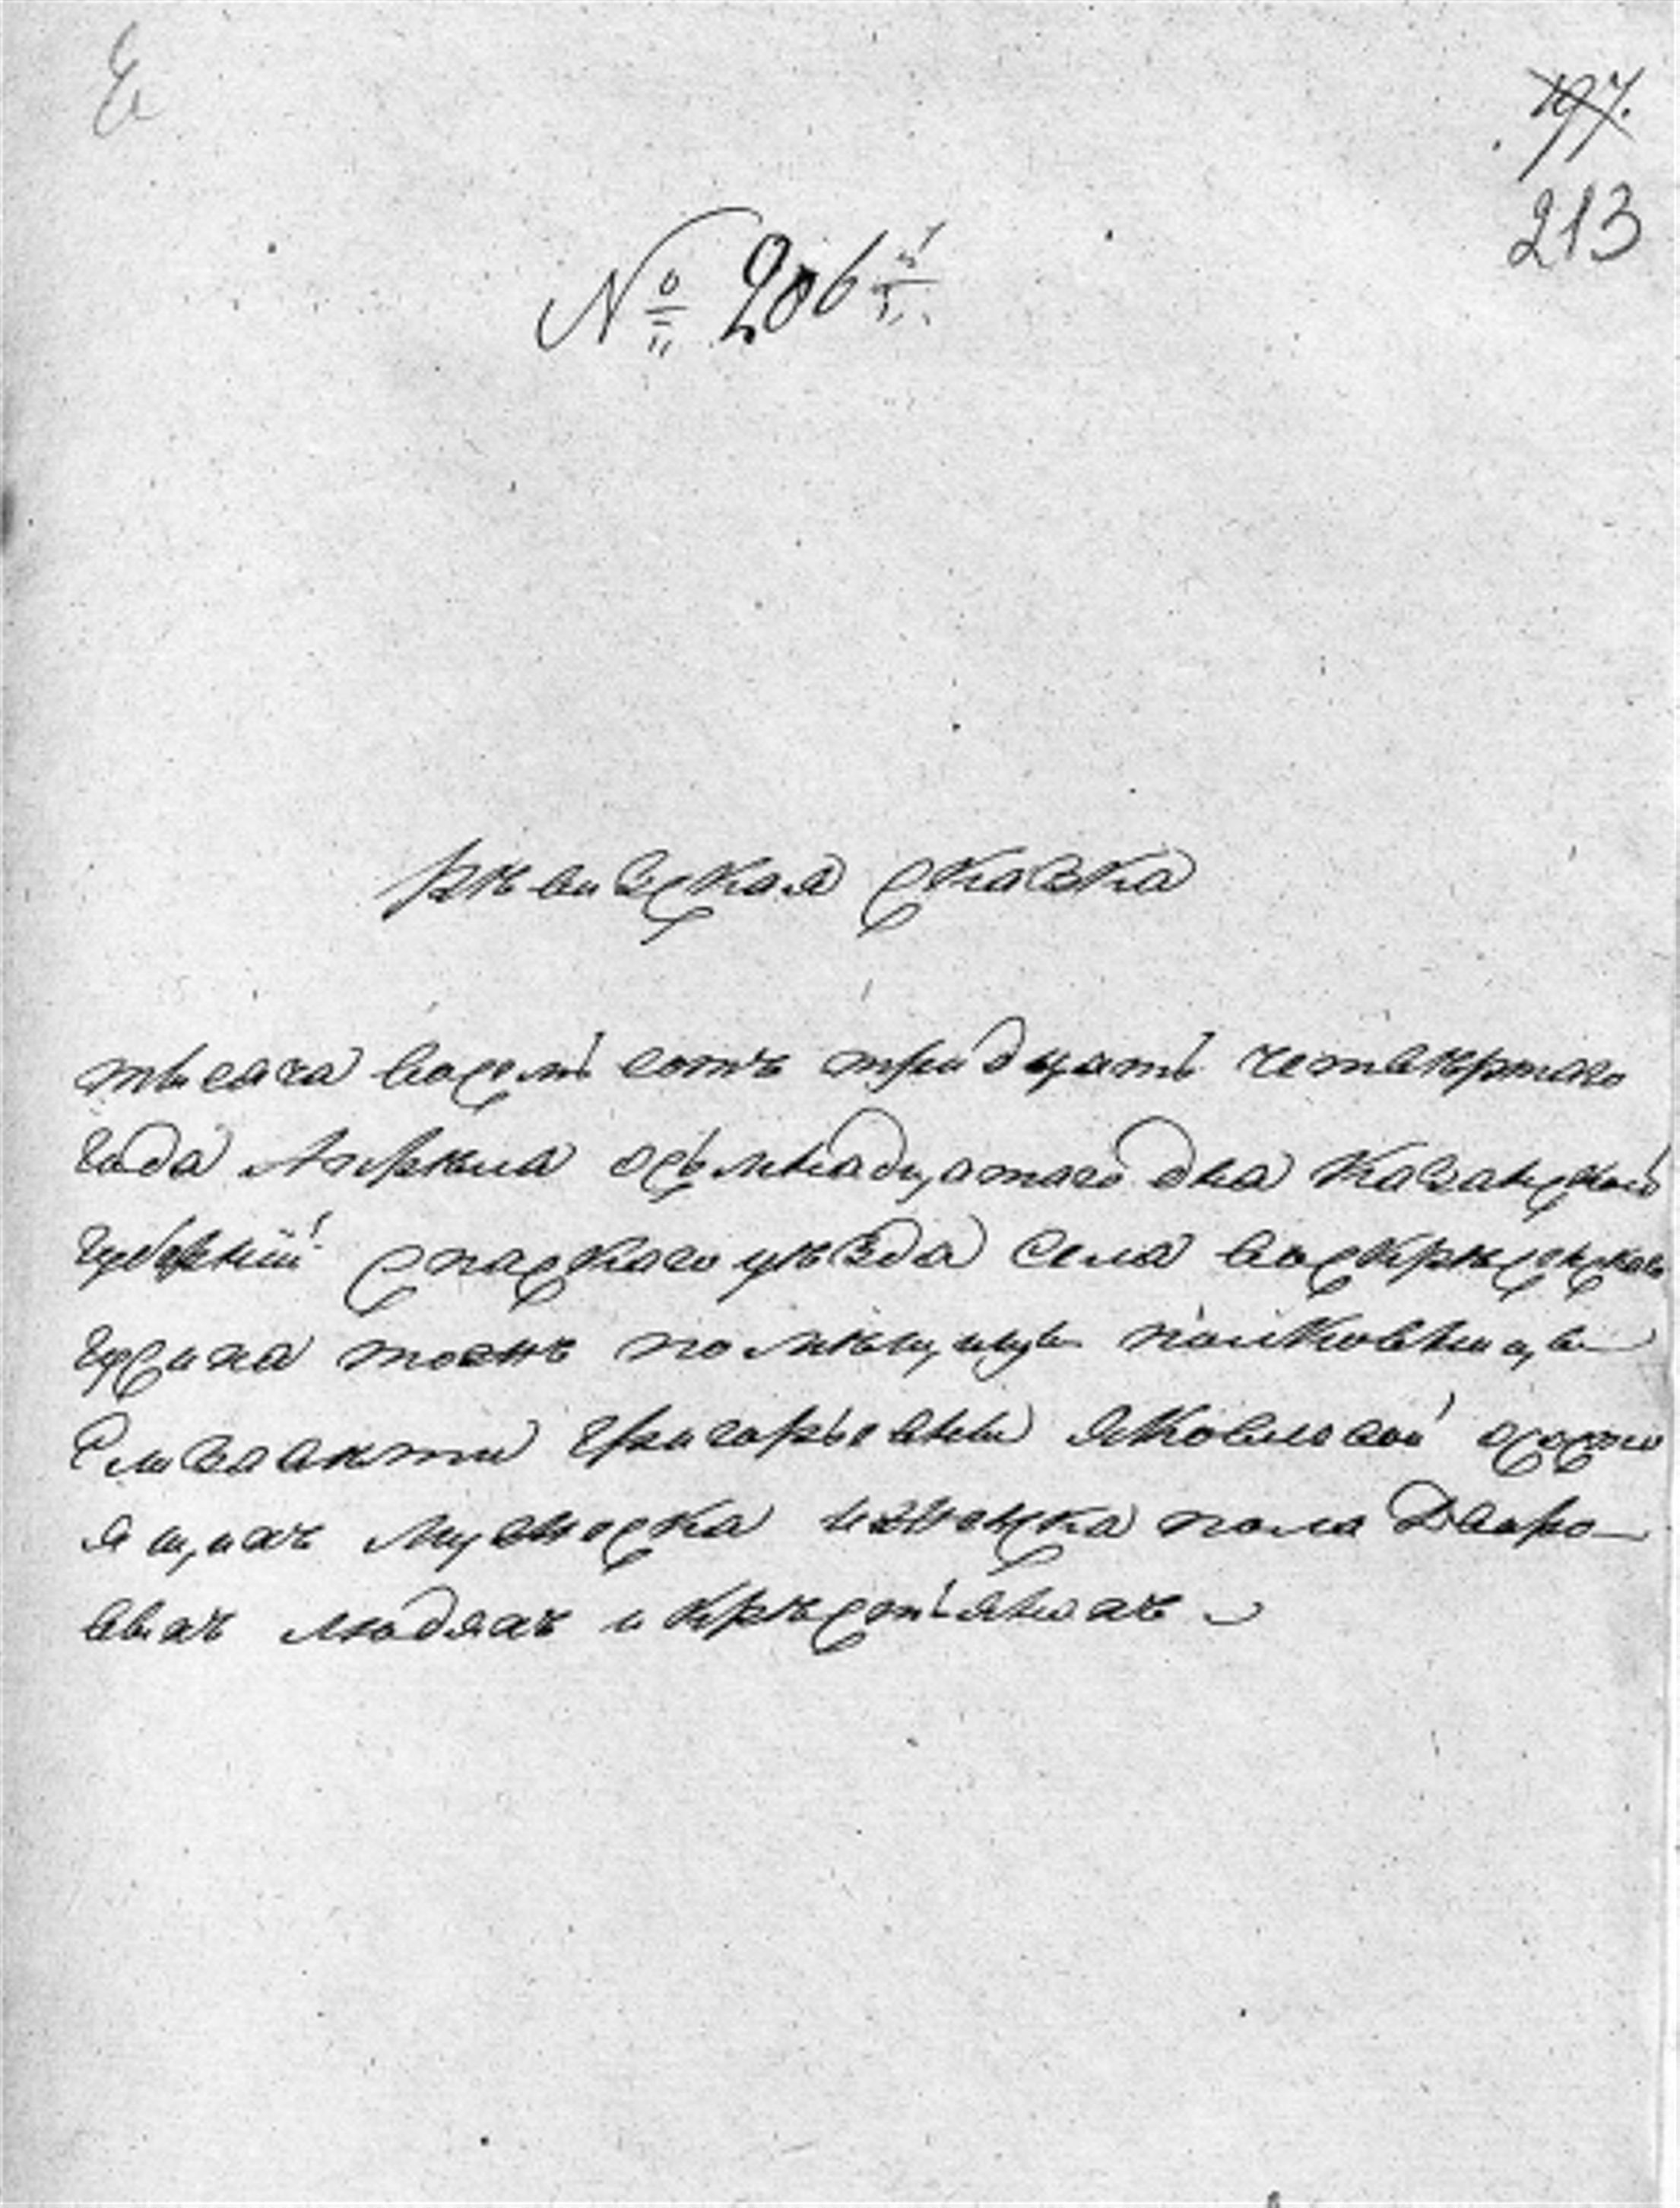 197.
213
№ 206й
рѣвизская сказка
тысеча восемь сотъ тридцать четвѣртаго
года Апрѣля осьмнадцатаго дня Казанской
губѣрнии Спаскаго уѣзда села воскрѣсенскаго
тожъ помѣщицы полковницы
Елизавѣты Григорьевны Яковлевой ососто
ящихъ мужеска иженска пола Дворо-
выхъ людяхъ и крѣстьянахъ